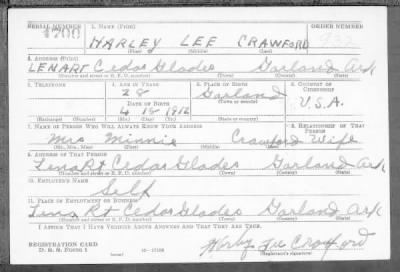 SERIAL NUMBER 1. NAME (Print) ORDER NUMBER
1700 HARLEY LEE CRAWFORD 932
(First) (Middle) (Last)
2. ADDRESS (Print)
LENART Cedar Glades Garland Ark
(Number and street or R. F. D. number) (Town) (County) (State)
3. TELEPHONE 4. AGE IN YEARS 5. PLACE OF BIRTH 6. COUNTRY OF CITIZENSHIP
28 Garland
DATE OF BIRTH (Town or county) U.S.A.
4 18 1912
(Exchange) (Number) (Mo.) (Day) (Yr.) (State or country)
7. NAME OF PERSON WHO WILL ALWAYS KNOW YOUR ADDRESS 8. RELATIONSHIP OF THAT PERSON
Mrs Minnie Crawford Wife
(Mr., Mrs., Miss) (First) (Middle) (Last)
9. ADDRESS OF THAT PERSON
Lena Rt Cedar Glades Garland Ark
(Number and street or R. F. D. number) (Town) (County) (State)
10. EMPLOYER'S NAME
Self
11. PLACE OF EMPLOYMENT OR BUSINESS
Lena Rt Cedar Glades Garland Ark
(Number and street or R. F. D. number) (Town) (County) (State)
I AFFIRM THAT I HAVE VERIFIED ABOVE ANSWERS AND THAT THEY ARE TRUE.
REGISTRATION CARD
D. S. S. Form 1 (over) 16—17105 Harley Lee Crawford
(Registrant's signature)